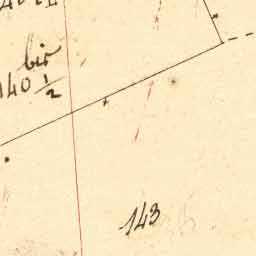 bis
140 ½
143